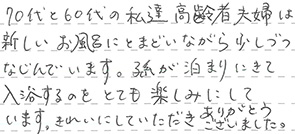 70代と60代の私達高齢者夫婦は
新しいお風呂にとまどいながら少しづつ
なじんでいます。孫が泊まりにきて
入浴するのをとても楽しみにして
います。きれいにしていただきありがとう
ございました。